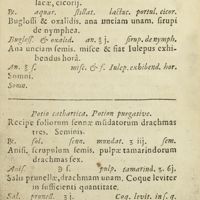 lacæ, cicorij.
℞. aquar. stillat. lactuc. portul. cicor.
Buglossi & oxalidis, ana unciam unam, sirupi
de nymphea.
Bugloss. & oxalid. an. ℥j. sirup. de nymph.
Ana unciam semis. misce & fiat Iulepus exhi-
bendus horâ.
An. ℥ ſ. misc. & f. Iulep. exhibend. hor.
Somni.
Somn.
Potio cathartica. Potion purgative.
Recipe foliorum sennæ mūdatorum drachmas
tres. Seminis.
℞. fol. senn. mundat. ʒ iij, sem.
Anisi, scrupulum semis, pulpæ tamarindorum
drachmas sex.
Anis. ℈ ſ. pulp. tamarind. ʒ 6j.
Salis prunellæ, drachmam unam, Coque leviter
in sufficienti quantitate.
Sal. prunell. ʒj. Coq. levit. in s. q.